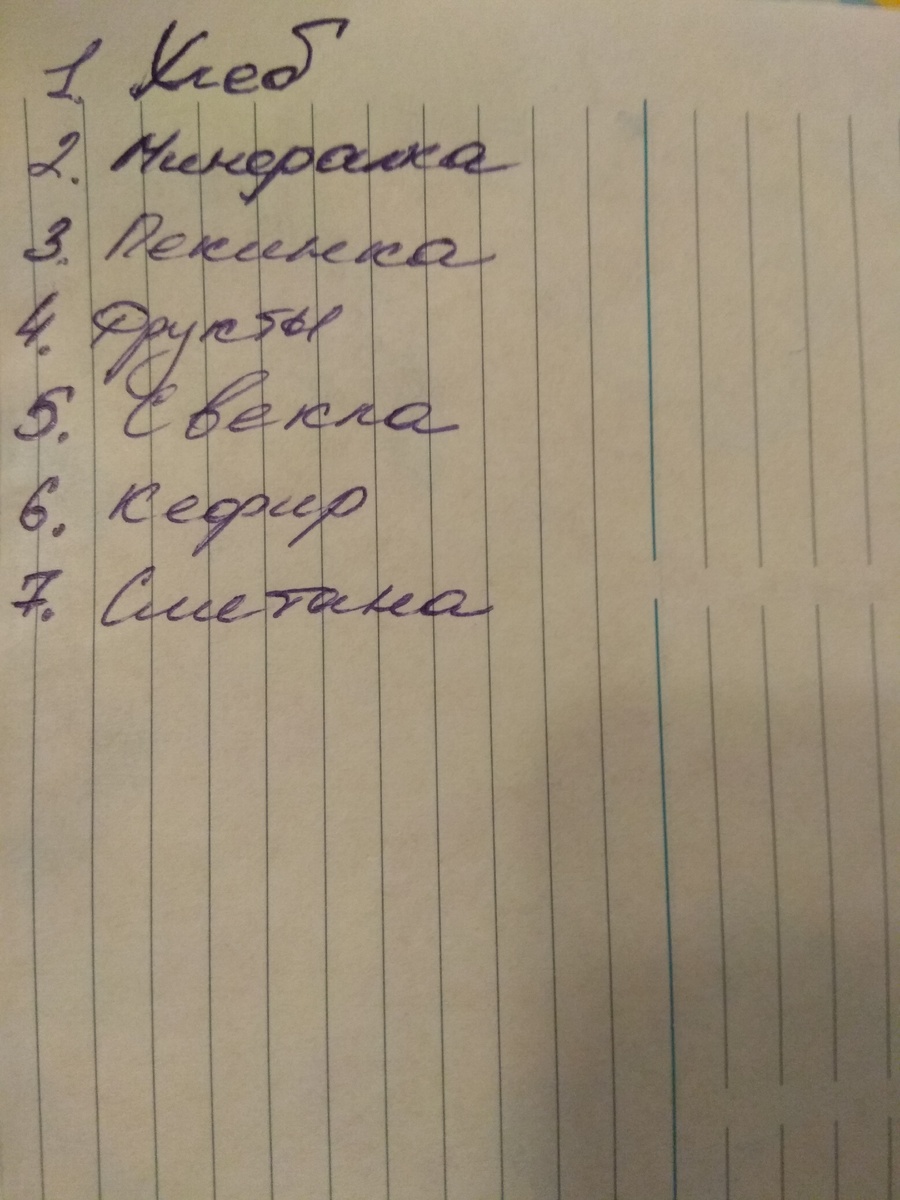 1. Хлеб
2. Минералка
3. Пекинка
4. Фрукты
5. Свекла
6. Кефир
7. Сметана